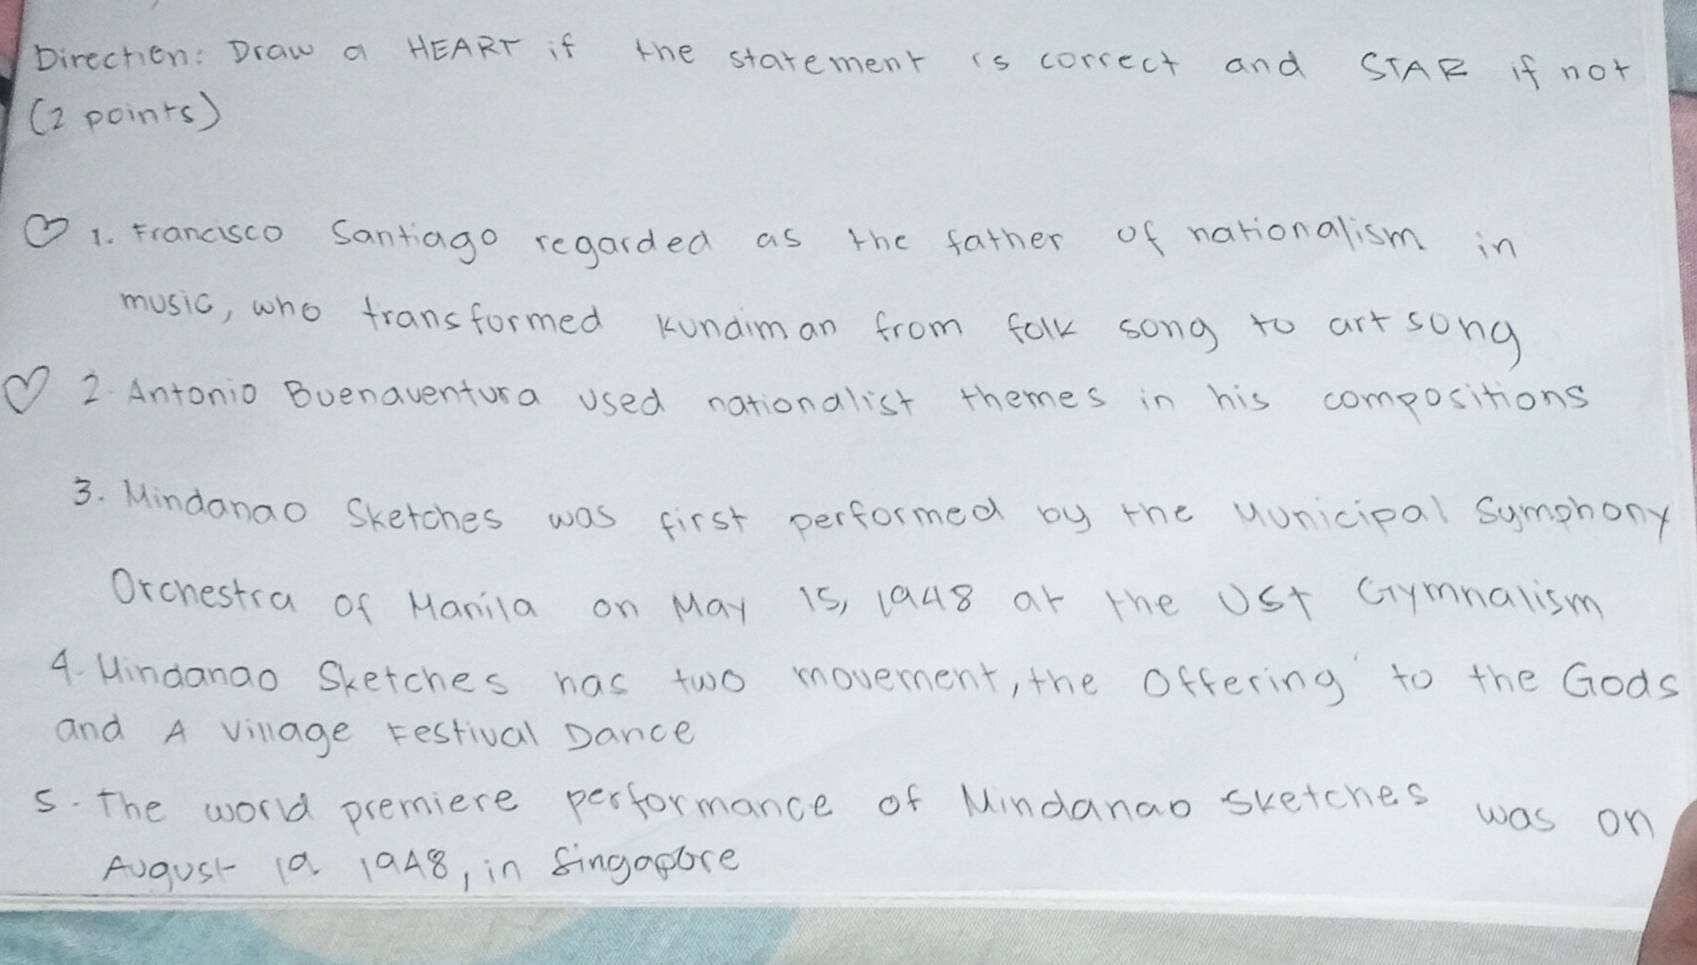 Direction: Draw a HEART if the statement is correct and STAR if not
(2 points)
♡ 1. Francisco Santiago regarded as the father of nationalism in
music, who transformed kundiman from folk song to art song
♡ 2. Antonio Buenaventura used nationalist themes in his compositions
3. Mindanao Sketches was first performed by the Municipal Symphony
Orchestra of Manila on May 15, 1948 at the UST Gymnalism
4. Mindanao Sketches has two movement, the Offering to the Gods
and A Village Festival Dance
5. The world premiere performance of Mindanao Sketches was on
August 19 1948, in Singapore